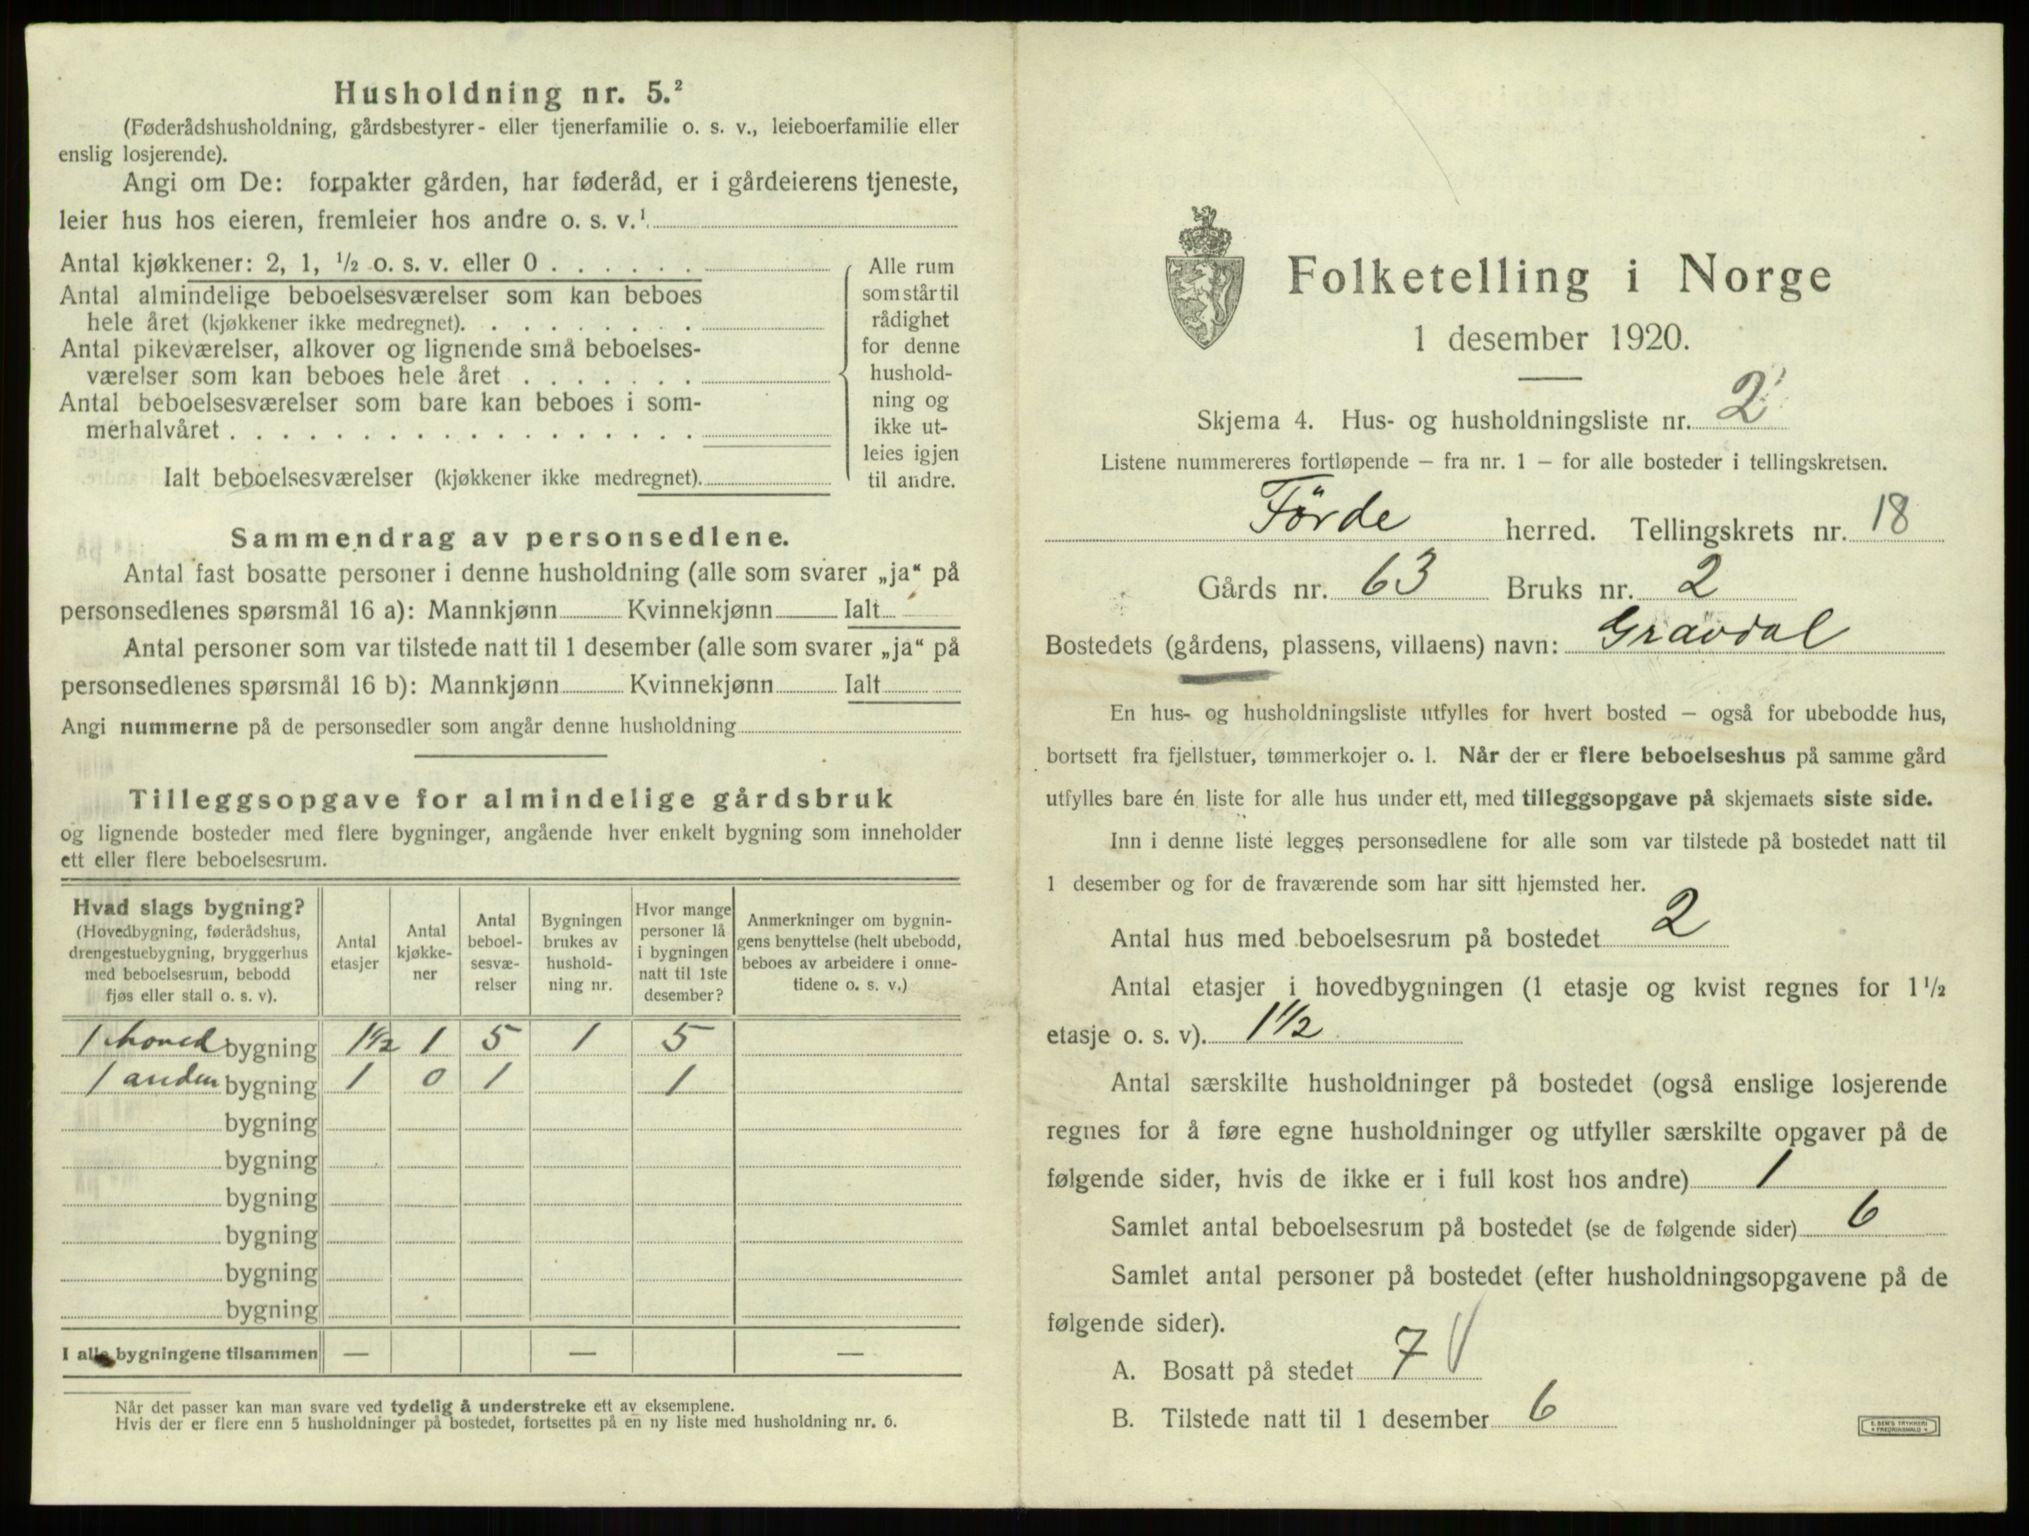 Husholdning nr. 5.²
(Føderådshusholdning, gårdsbestyrer- eller tjenerfamilie o. s. v., leieboerfamilie eller
enslig losjerende).
Angi om De: forpakter gården, har føderåd, er i gårdeierens tjeneste,
leier hus hos eieren, fremleier hos andre o. s. v.¹
Antal kjøkkener: 2, 1, ½ o. s. v. eller 0 . . . . . .
Antal almindelige beboelsesværelser som kan beboes
hele året (kjøkkener ikke medregnet). . . . . . . . .
Antal pikeværelser, alkover og lignende små beboelses-
værelser som kan beboes hele året . . . . . . .
Antal beboelsesværelser som bare kan beboes i som-
merhalvåret . . . . . . . . . . . . . . . . . .
Ialt beboelsesværelser (kjøkkener ikke medregnet).
Alle rum
som står til
rådighet
for denne
hushold-
ning og
ikke ut-
leies igjen
til andre.
Sammendrag av personsedlene.
Antal fast bosatte personer i denne husholdning (alle som svarer „ja“ på
personsedlenes spørsmål 16 a): Mannkjønn Kvinnekjønn Ialt
Antal personer som var tilstede natt til 1 desember (alle som svarer „ja“ på
personsedlenes spørsmål 16 b): Mannkjønn Kvinnekjønn Ialt
Angi nummerne på de personsedler som angår denne husholdning
Tilleggsopgave for almindelige gårdsbruk
og lignende bosteder med flere bygninger, angående hver enkelt bygning som inneholder
ett eller flere beboelsesrum.
Hvad slags bygning?
(Hovedbygning, føderådshus,
drengestuebygning, bryggerhus
med beboelsesrum, bebodd
fjøs eller stall o. s. v).
Antal
etasjer
Antal
kjøkke-
ner
Antal
beboel-
sesvæ-
relser
Bygningen
brukes av
hushold-
ning nr.
Hvor mange
personer lå
i bygningen
natt til 1ste
desember?
Anmerkninger om bygnin-
gens benyttelse (helt ubebodd,
beboes av arbeidere i onne-
tidene o. s. v.)
1 hoved bygning 1½ 1 5 1 5
1 anden bygning 1 0 1 1
bygning
bygning
bygning
bygning
bygning
bygning
I alle bygningene tilsammen — — —
Når det passer kan man svare ved tydelig å understreke ett av eksemplene.
Hvis der er flere enn 5 husholdninger på bostedet, fortsettes på en ny liste med husholdning nr. 6.
Folketelling i Norge
1 desember 1920.
Skjema 4. Hus- og husholdningsliste nr. 2
Listene nummereres fortløpende – fra nr. 1 – for alle bosteder i tellingskretsen.
Förde herred. Tellingskrets nr. 18
Gårds nr. 63 Bruks nr. 2
Bostedets (gårdens, plassens, villaens) navn: Gravdal
En hus- og husholdningsliste utfylles for hvert bosted – også for ubebodde hus,
bortsett fra fjellstuer, tømmerkojer o. l. Når der er flere beboelseshus på samme gård
utfylles bare én liste for alle hus under ett, med tilleggsopgave på skjemaets siste side.
Inn i denne liste legges personsedlene for alle som var tilstede på bostedet natt til
1 desember og for de fraværende som har sitt hjemsted her.
Antal hus med beboelsesrum på bostedet 2
Antal etasjer i hovedbygningen (1 etasje og kvist regnes for 1½
etasje o. s. v). 1½
Antal særskilte husholdninger på bostedet (også enslige losjerende
regnes for å føre egne husholdninger og utfyller særskilte opgaver på de
følgende sider, hvis de ikke er i full kost hos andre) 1
Samlet antal beboelsesrum på bostedet (se de følgende sider) 6
Samlet antal personer på bostedet (efter husholdningsopgavene på de
følgende sider).
A. Bosatt på stedet 7
B. Tilstede natt til 1 desember 6